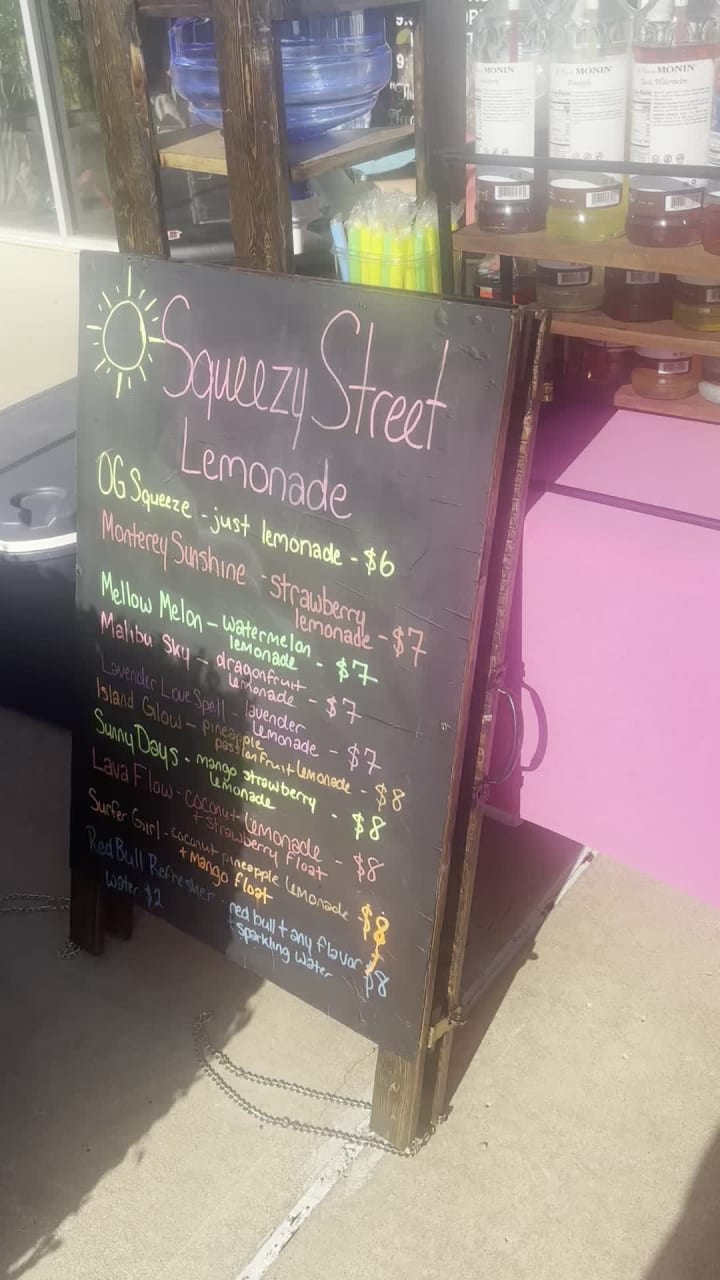 Squeezy Street
Lemonade
OG Squeeze - just lemonade - $6
Monterey Sunshine - strawberry
lemonade - $7
Mellow Melon - watermelon
lemonade - $7
Malibu Sky - dragonfruit
lemonade - $7
Lavender Love Spell - lavender
lemonade - $7
Island Glow - pineapple
passionfruit lemonade - $8
Sunny Days - mango strawberry
lemonade - $8
Lava Flow - coconut lemonade
+ strawberry float - $8
Surfer Girl - coconut pineapple lemonade
+ mango float $8
Red Bull Refresher - red bull + any flavor
sparkling water $8
Water $2
MONIN
MONIN
MONIN